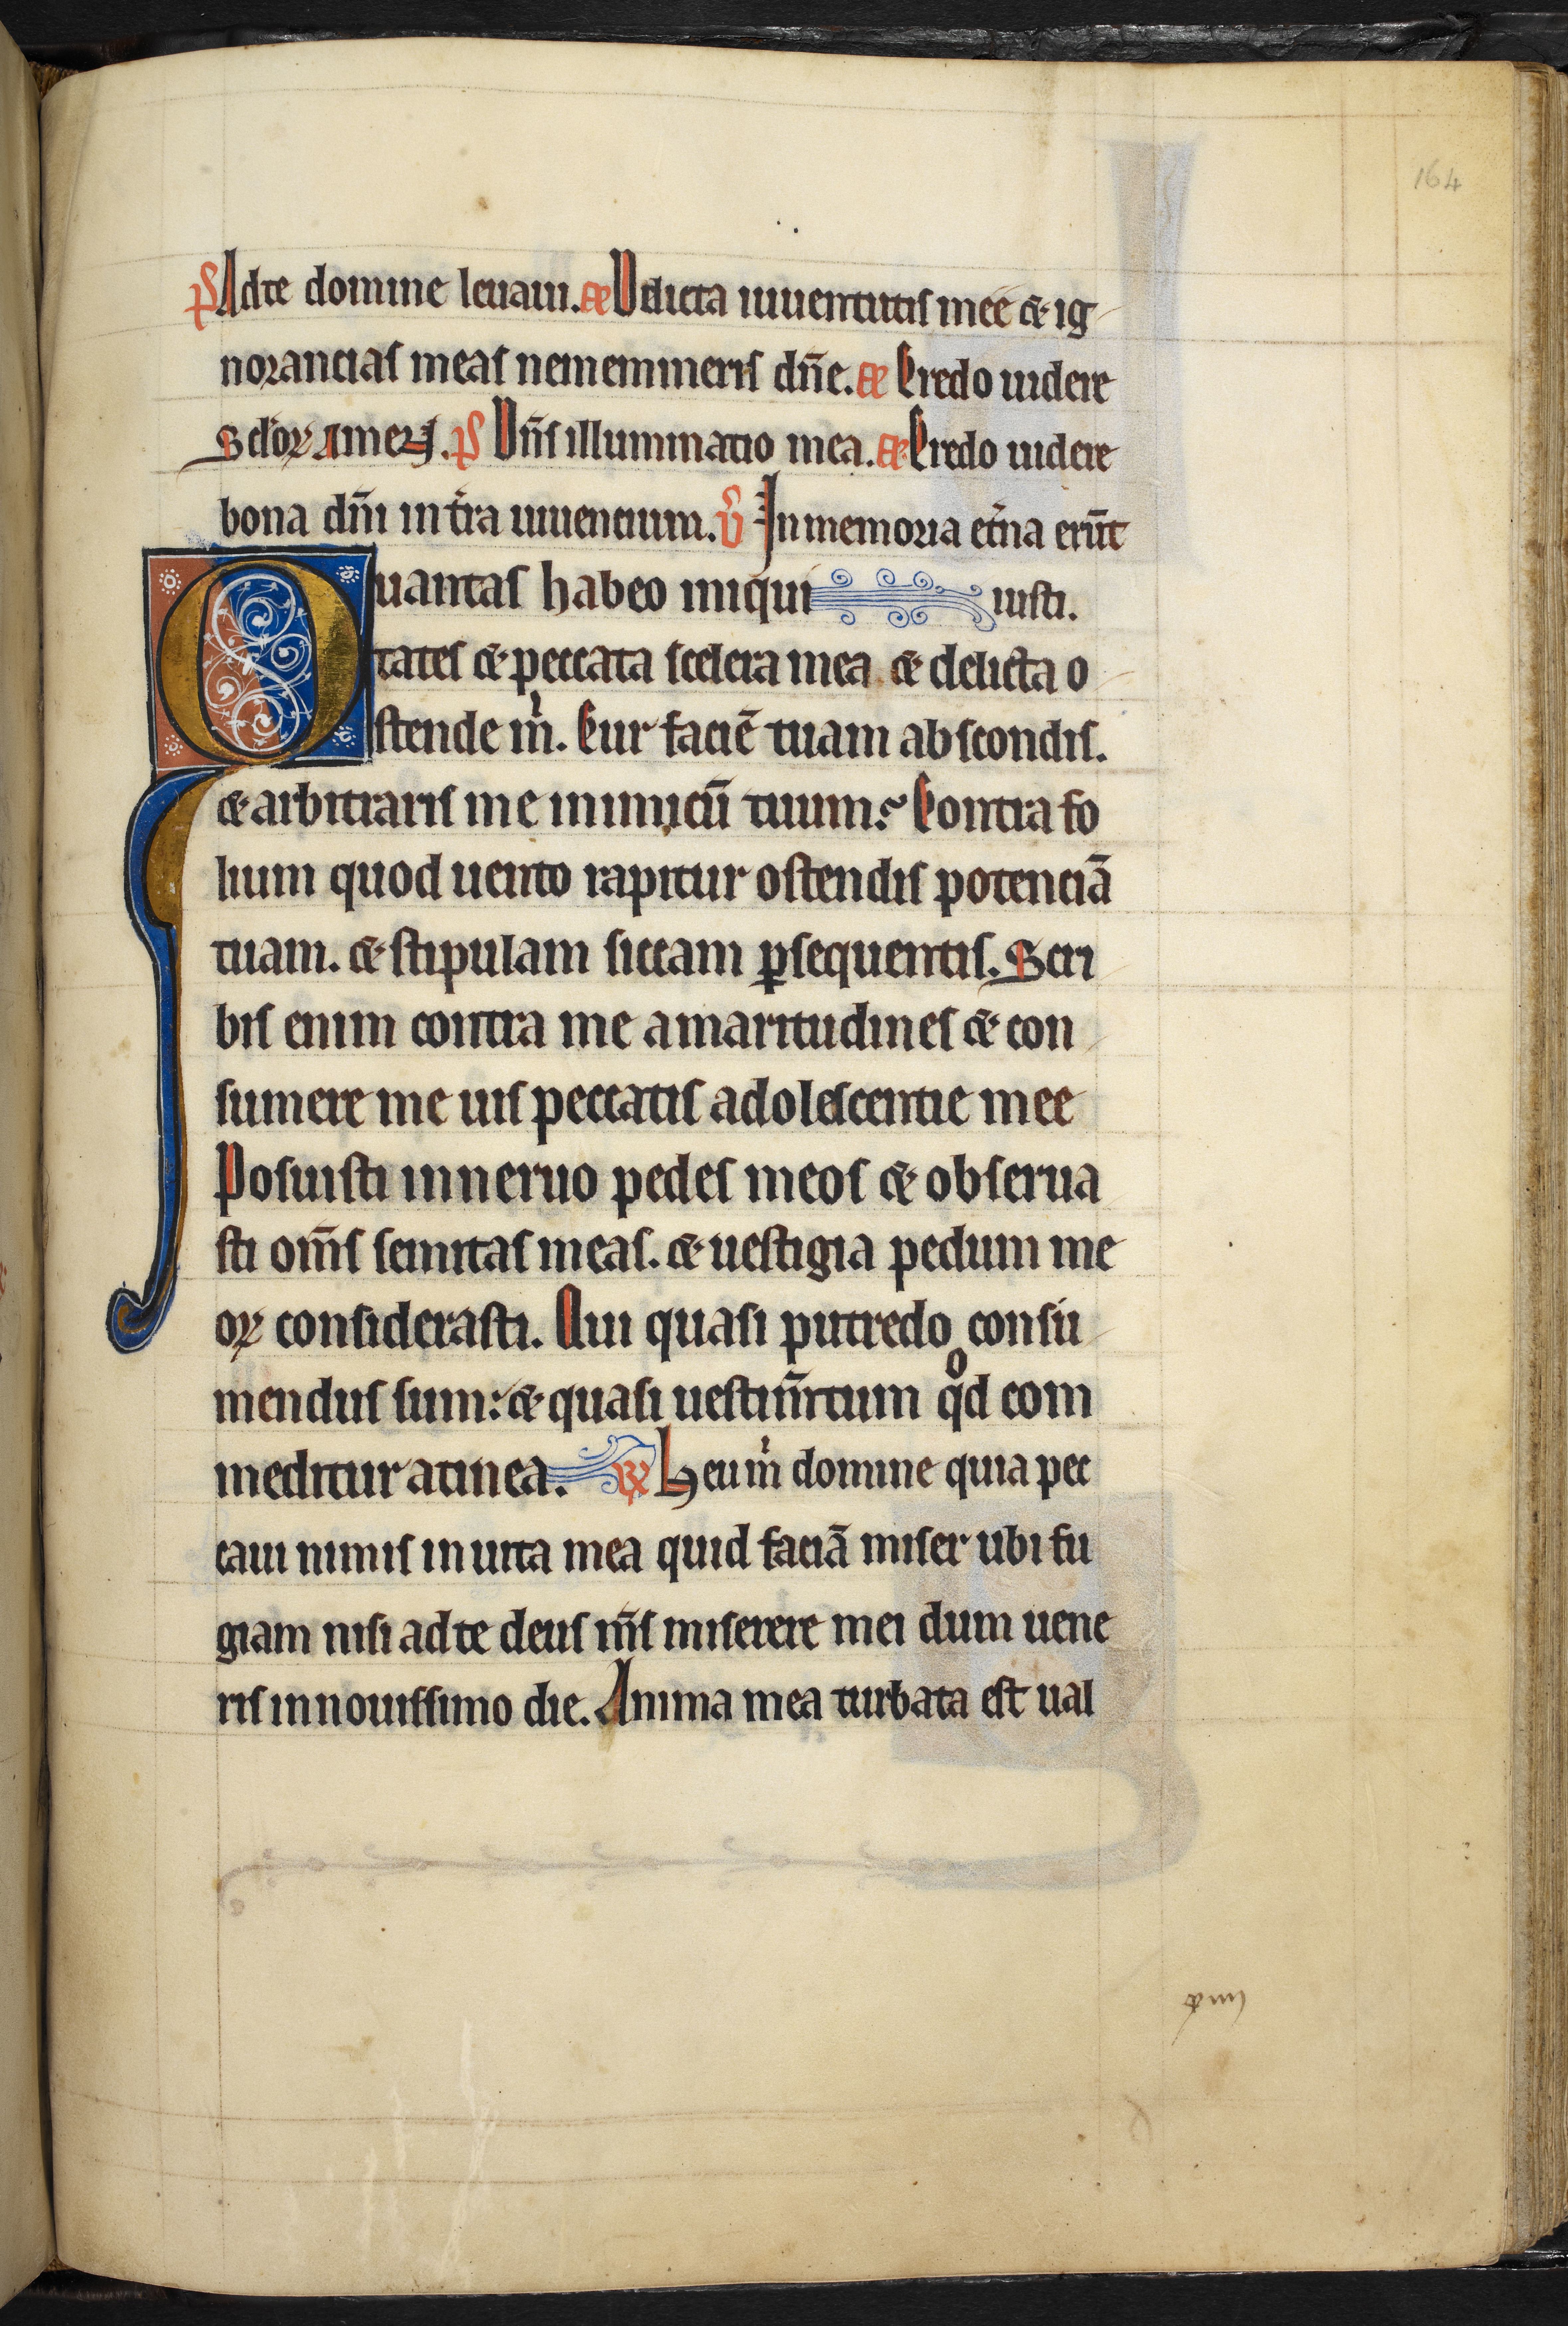 164
pͦs Adte domine leuaui. ã Delicta iuuentutis mee & ig
norancias meas nememineris dñe. ã Credo uidere
Scl'oꝝ Amen. ps Dñs illuminatio mea. ã Credo uidere
bona dñi in t̓ra uiuencium. v̓ Jn memoria et̓na erūt
Quantas habeo iniqui iusti.
tates & peccata scelera mea & delicta o
stende m̓. Cur faciē tuam abscondis.
& arbitraris me inimicū tuum? Contra fo
lium quod uento rapitur ostendis potenciā
tuam. & stipulam siccam ꝑsequeris. Scri
bis enim contra me amaritudines & con
sumere me uis peccatis adolescentie mee
Posuisti in neruo pedes meos & obserua
sti om̄s semitas meas. & uestigia pedum me
oꝝ considerasti. Qui quasi putredo consu
mendus sum: & quasi uestim̄tum qͦd com
meditur atinea. ꝶ Heu m̓ domine quia pec
caui nimis in uita mea quid faciā miser ubi fu
giam nisi adte deus m̄s miserere mei dum uene
ris in nouissimo die. Anima mea turbata est ual